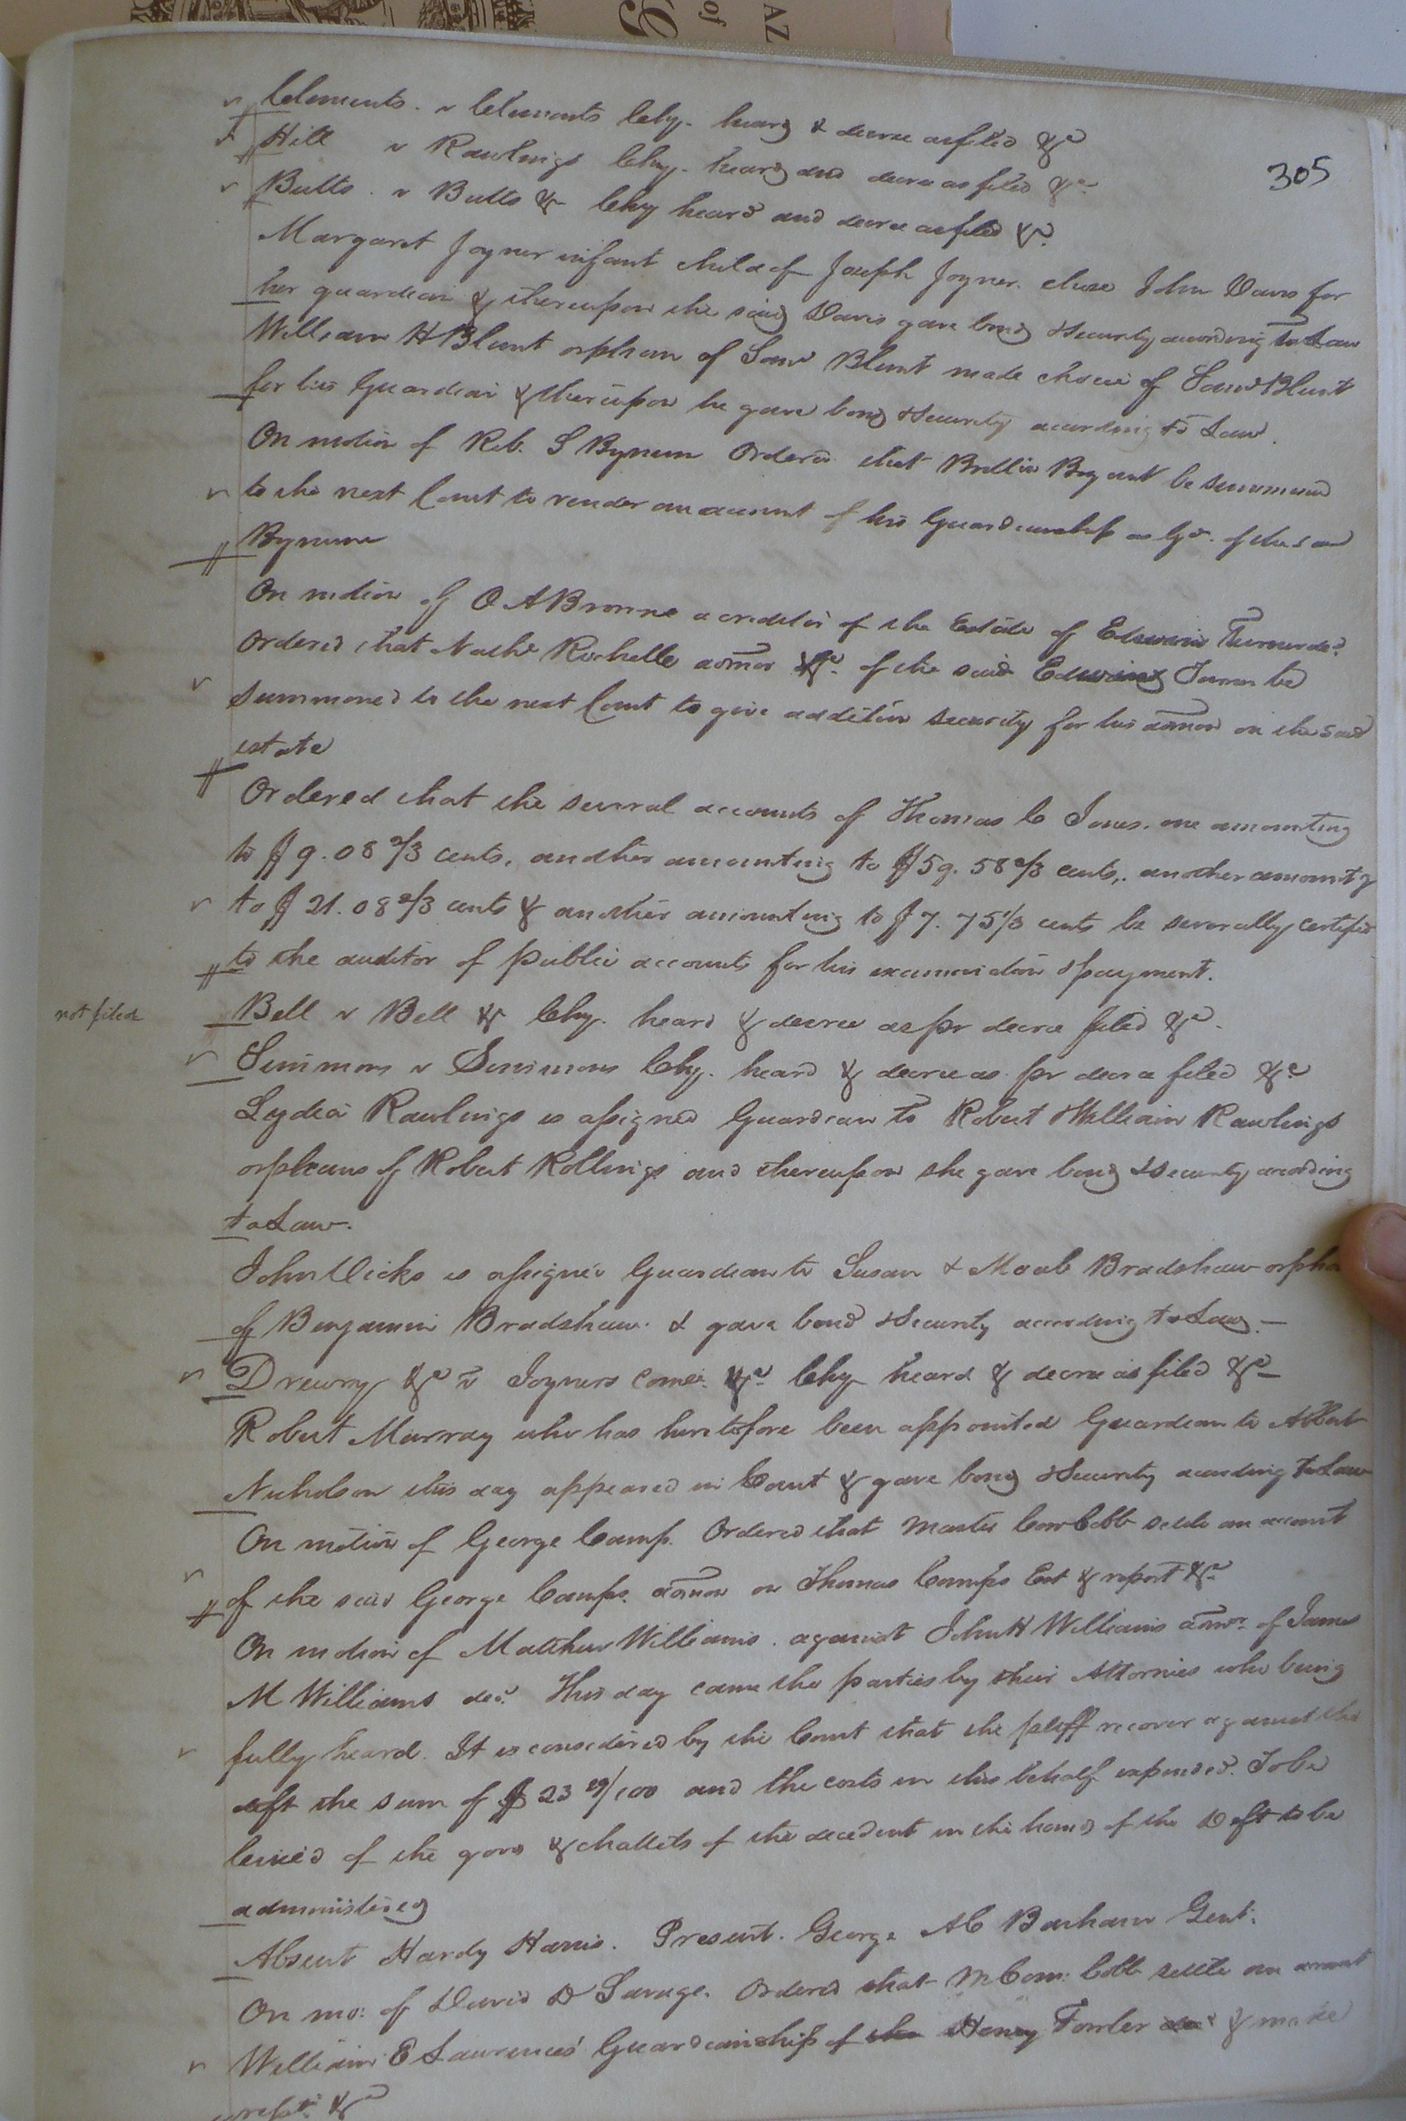 AZ
of
G
305
Clements. v Clements Chy. heard & decree as filed &c
Hill v Rawlings Chy. heard and decree as filed &c
Butts. v Butts & Chy heard and decree as filed &c
Margaret Joyner infant child of Joseph Joyner. chuse John Davis for
her guardian & thereupon the said Davis gave bond & security according to Law
William H Blunt orphan of Saml Blunt made choice of Saml Blunt
for his Guardian & thereupon he gave bond & security according to Law.
On motion of Rob. S Bynum Ordered that Bryant be summoned
to the next Court to render an account of his Guardianship as Gd. of the said
Bynum
On motion of O A Browne a creditor of the Estate of Edwin Turner decd.
Ordered that Nathl Rochelle admor &c. of the said Edwin Turner be
summoned to the next Court to give addition security for his admon on the said
estate
Ordered that the several accounts of Thomas C Jones. one amounting
to $9.08 2/3 cents, another amounting to $59.58 2/3 cents, another amountg
to $21.08 2/3 cents & another amounting to $7.75 1/3 cents be severally certified
to the auditor of public accounts for his examination & payment.
not filed
Bell v Bell & Chy. heard & decree as pr decree filed &c.
Simmons v Simmons Chy. heard & decree as pr decree filed &c
Lydia Rawlings is assigned Guardian to Robert & William Rawlings
orphans of Robert Rollings and thereupon she gave bond & security according
to Law.
John Vicks is assigned Guardian to Susan & Moab Bradshaw orpha
of Benjamin Bradshaw. & gave bond & security according to Law.—
Drewry &c v Joyners &c Chy heard & decree as filed &c—
Robert Murray who has heretofore been appointed Guardian to Albert
Nicholson this day appeared in Court & gave bond & security according to Law
On motion of George Camp. Ordered that Master Com Cobb settle an account
of the said George Camps. admon on Thomas Camps Est & report &c
On motion of Matthew Williams. against John H Williams admr. of James
M Williams decd. This day came the parties by their Attornies who being
fully heard. It is considered by the Court that the pltff recover against the
deft the sum of $23 29/100 and the costs in this behalf expended. To be
levied of the goods & chattels of the decedent in the hands of the Deft to be
administered
Absent Hardy Harris. Present. George A C Barham Gent.
On mo: of David D Savage. Ordered that M Com: Cobb settle an account
William E Laurences' Guardianship of the Henry Fowler & make
report &c